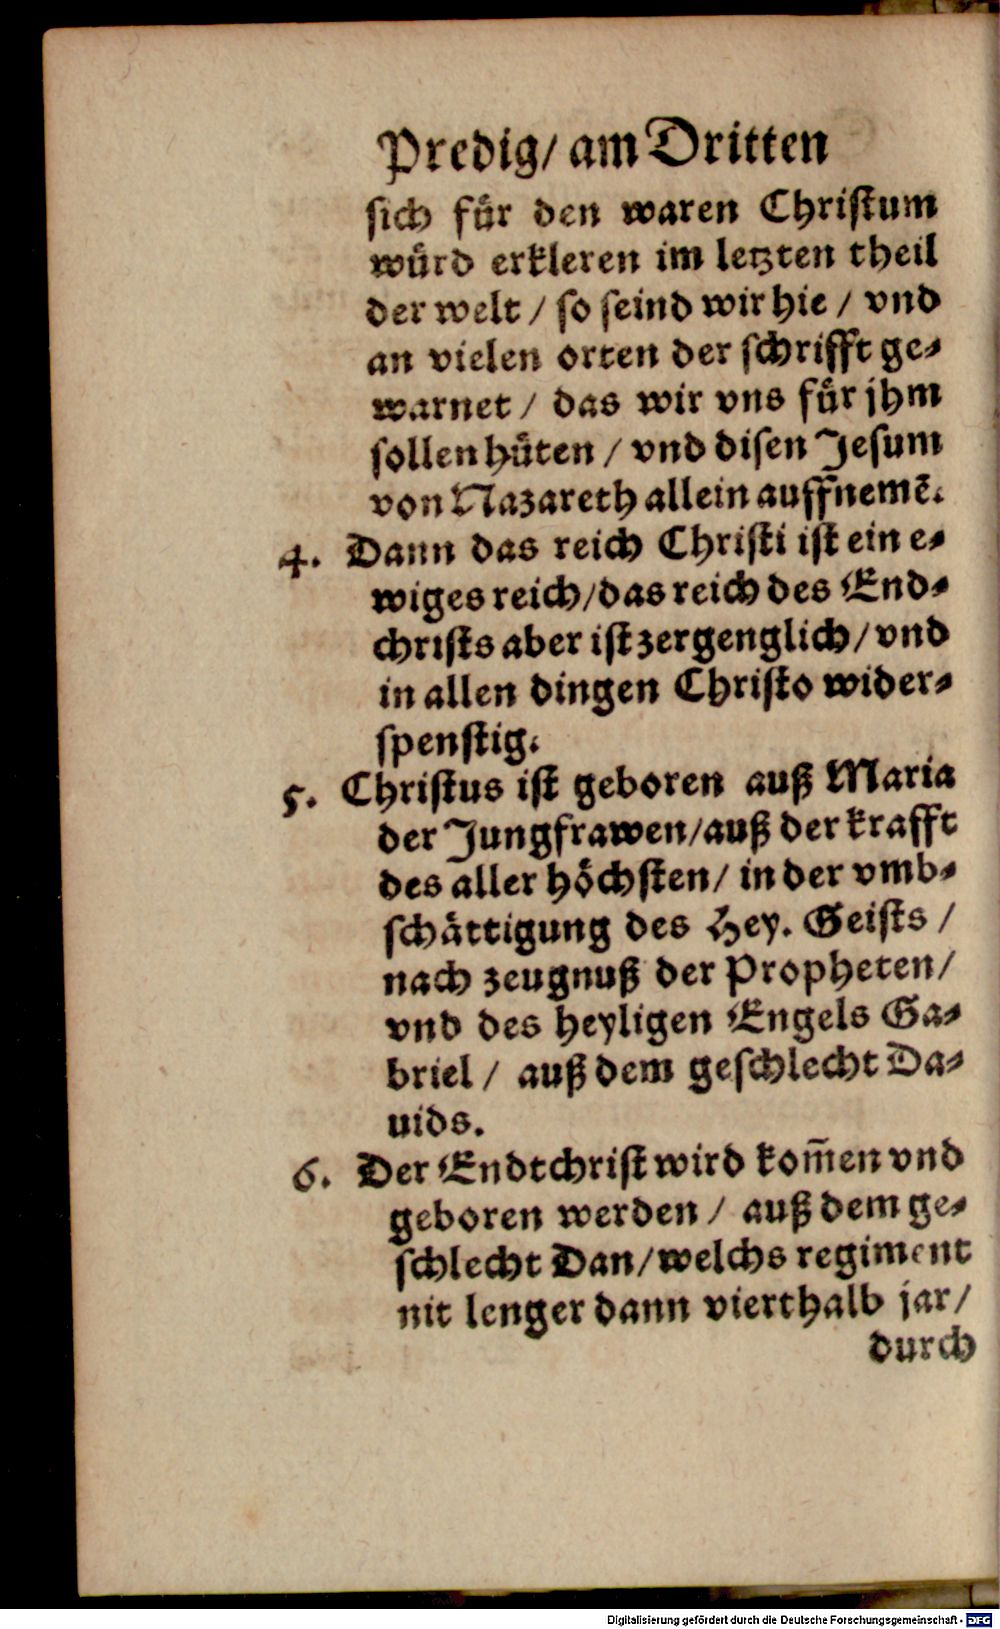 Predig/ am Dritten
sich fuͤr den waren Christum
wuͤrd erkleren im letzten theil
der welt / so seind wir hie / vnd
an vielen orten der schrifft ge-
warnet / das wir vns fuͤr jhm
sollen huͤten / vnd disen Jesum
von Nazareth allein auffnemē.
4. Dann das reich Christi ist ein e-
wiges reich/das reich des End-
christs aber ist zergenglich/vnd
in allen dingen Christo wider-
spenstig.
5. Christus ist geboren auß Maria
der Jungfrawen/auß der krafft
des aller hoͤchsten/ in der vmb-
schaͤttigung des Hey. Geists /
nach zeugnuß der Propheten/
vnd des heyligen Engels Ga-
briel / auß dem geschlecht Da-
uids.
6. Der Endtchrist wird kom̄en vnd
geboren werden / auß dem ge-
schlecht Dan/welchs regiment
nit lenger dann vierthalb jar/
durch
Digitalisierung gefördert durch die Deutsche Forschungsgemeinschaft - DFG